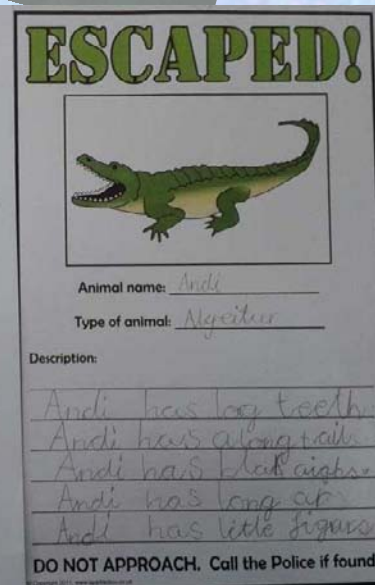 ESCAPED!
Animal name: Andi
Type of animal: Algeitur
Description:
Andi has log teeth
Andi has a long tail
Andi has blak aighs.
Andi has long
Andi has letle figurs
DO NOT APPROACH. Call the Police if found